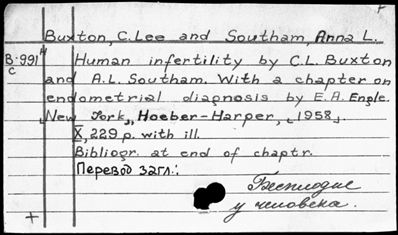 Buxton, C. Lee and Southam, Anna L.
B-991 Human infertility by C.L. Buxton
C and A.L. Southam. With a chapter on
endometrial diagnosis by E.A. Engle.
New York, Hoeber-Harper, 1958.
X, 229 p. with ill.
Bibliogr. at end of chaptr.
Перевод загл.:
Бесплодие
у человека.